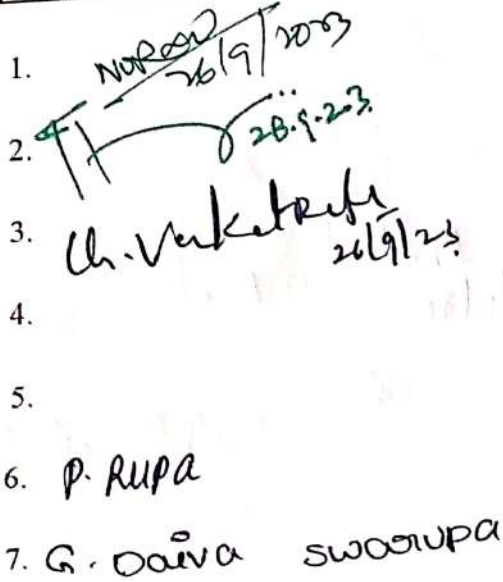 1. NORAD 26/9/2023
2. 28.9.23.
3. Ch. Venkat 26/9/23
4.
5.
6. P. RUPA
7. G. Daiva swarupa